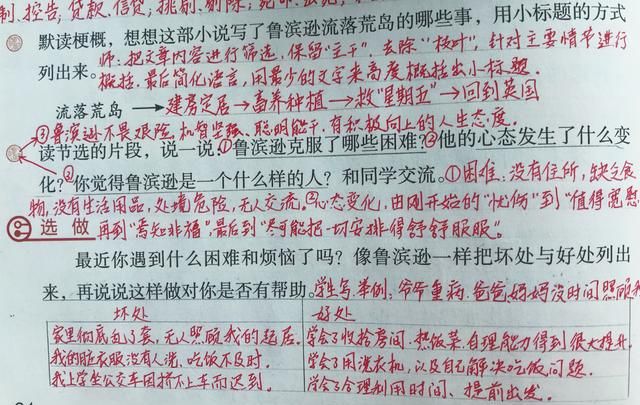 制,控告;贷款、信贷;排剔、剔除;
默读梗概,想想这部小说写了鲁滨逊流落荒岛的哪些事,用小标题的方式
师:把文章内容进行筛选,保留“主干”,去除“枝叶”,针对主要情节进行
列出来。概括,最后简化语言,用最少的文字来高度概括出小标题。
流落荒岛→建房定居→畜养种植→救“星期五”→回到英国
③鲁滨逊不畏艰险,机智坚强、聪明能干,有积极向上的人生态度。
读节选的片段,说一说:①鲁滨逊克服了哪些困难?②他的心态发生了什么变
化?③你觉得鲁滨逊是一个什么样的人?和同学交流。①困难:没有住所,缺乏食
物,没有生活用品,处境危险,无人交流。②心态变化:由刚开始的“忧伤”到“值得宽慰”
选做 再到“焉知非福”,最后到“尽可能把一切安排得舒舒服服”。
最近你遇到什么困难和烦恼了吗?像鲁滨逊一样把坏处与好处列出
来,再说说这样做对你是否有帮助。学生写,举例:爷爷重病,爸爸妈妈没时间照顾我
坏处 好处
家里彻底乱了套,无人照顾我的起居。 学会了收拾房间、热饭菜,自理能力得到很大提升。
我的脏衣服没有人洗,吃饭不及时。 学会了用洗衣机,以及自己解决吃饭问题。
我上学坐公交车因挤不上车而迟到。 学会了合理利用时间、提前出发。